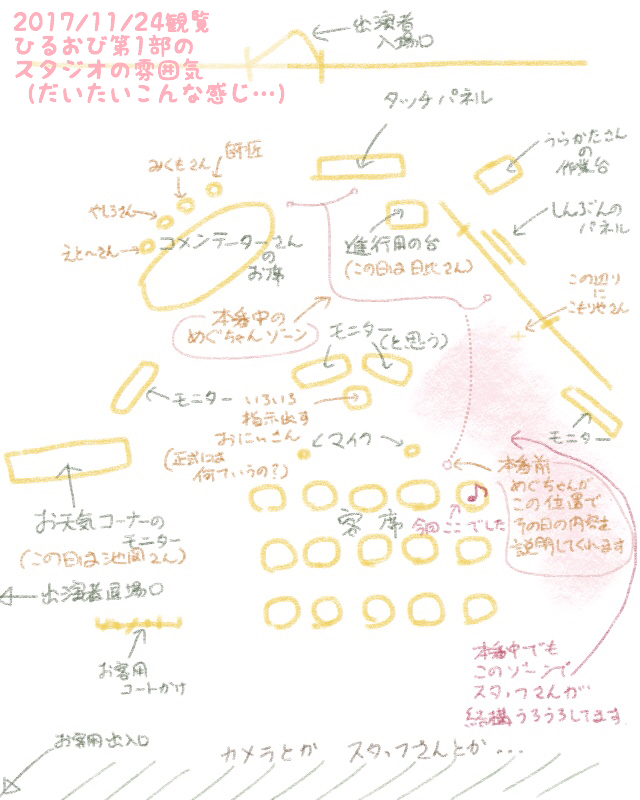 2017/11/24観覧
ひるおび第1部の
スタジオの雰囲気
(だいたいこんな感じ…)
出演者
入場口
タッチパネル
うらかたさん
の
作業台
師匠
みくもさん
やしろさん
えと〜さん
コメンテーターさん
の
お席
進行用の台
(この日は日比さん)
しんぶんの
パネル
この辺り
に
こもりやさん
本番中の
めぐちゃんゾーン
モニター
(と思う)
モニター
いろいろ
指示出す
おにいさん
(正式には
何ていうの?)
マイク
モニター
お天気コーナーの
モニター
(この日は池岡さん)
客席
今回ここでした
本番前
めぐちゃんが
この位置で
今日の内容を
説明してくれます
出演者退場口
お客用
コートかけ
本番中でも
このゾーンで
スタッフさんが
結構うろうろしてます
お客用出入口
カメラとか スタッフさんとか…